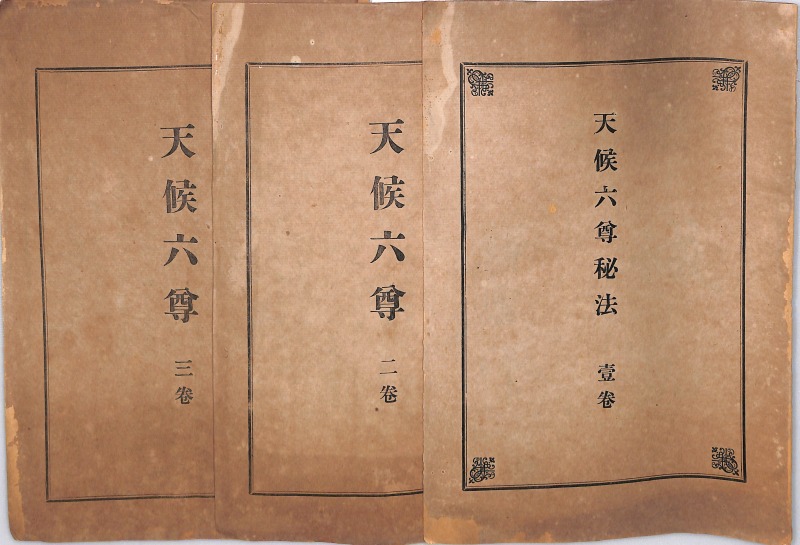 天候六尊秘法 壹卷
天候六尊 二卷
天候六尊 三卷